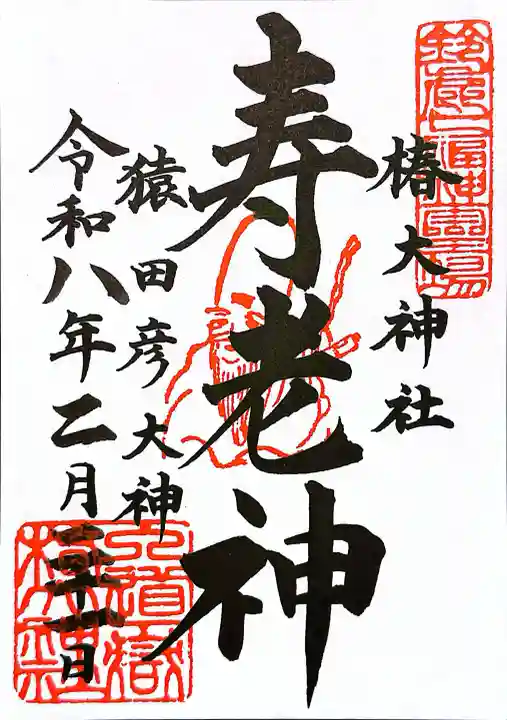 椿大神社
寿老神
猿田彦大神
令和八年二月二十一日